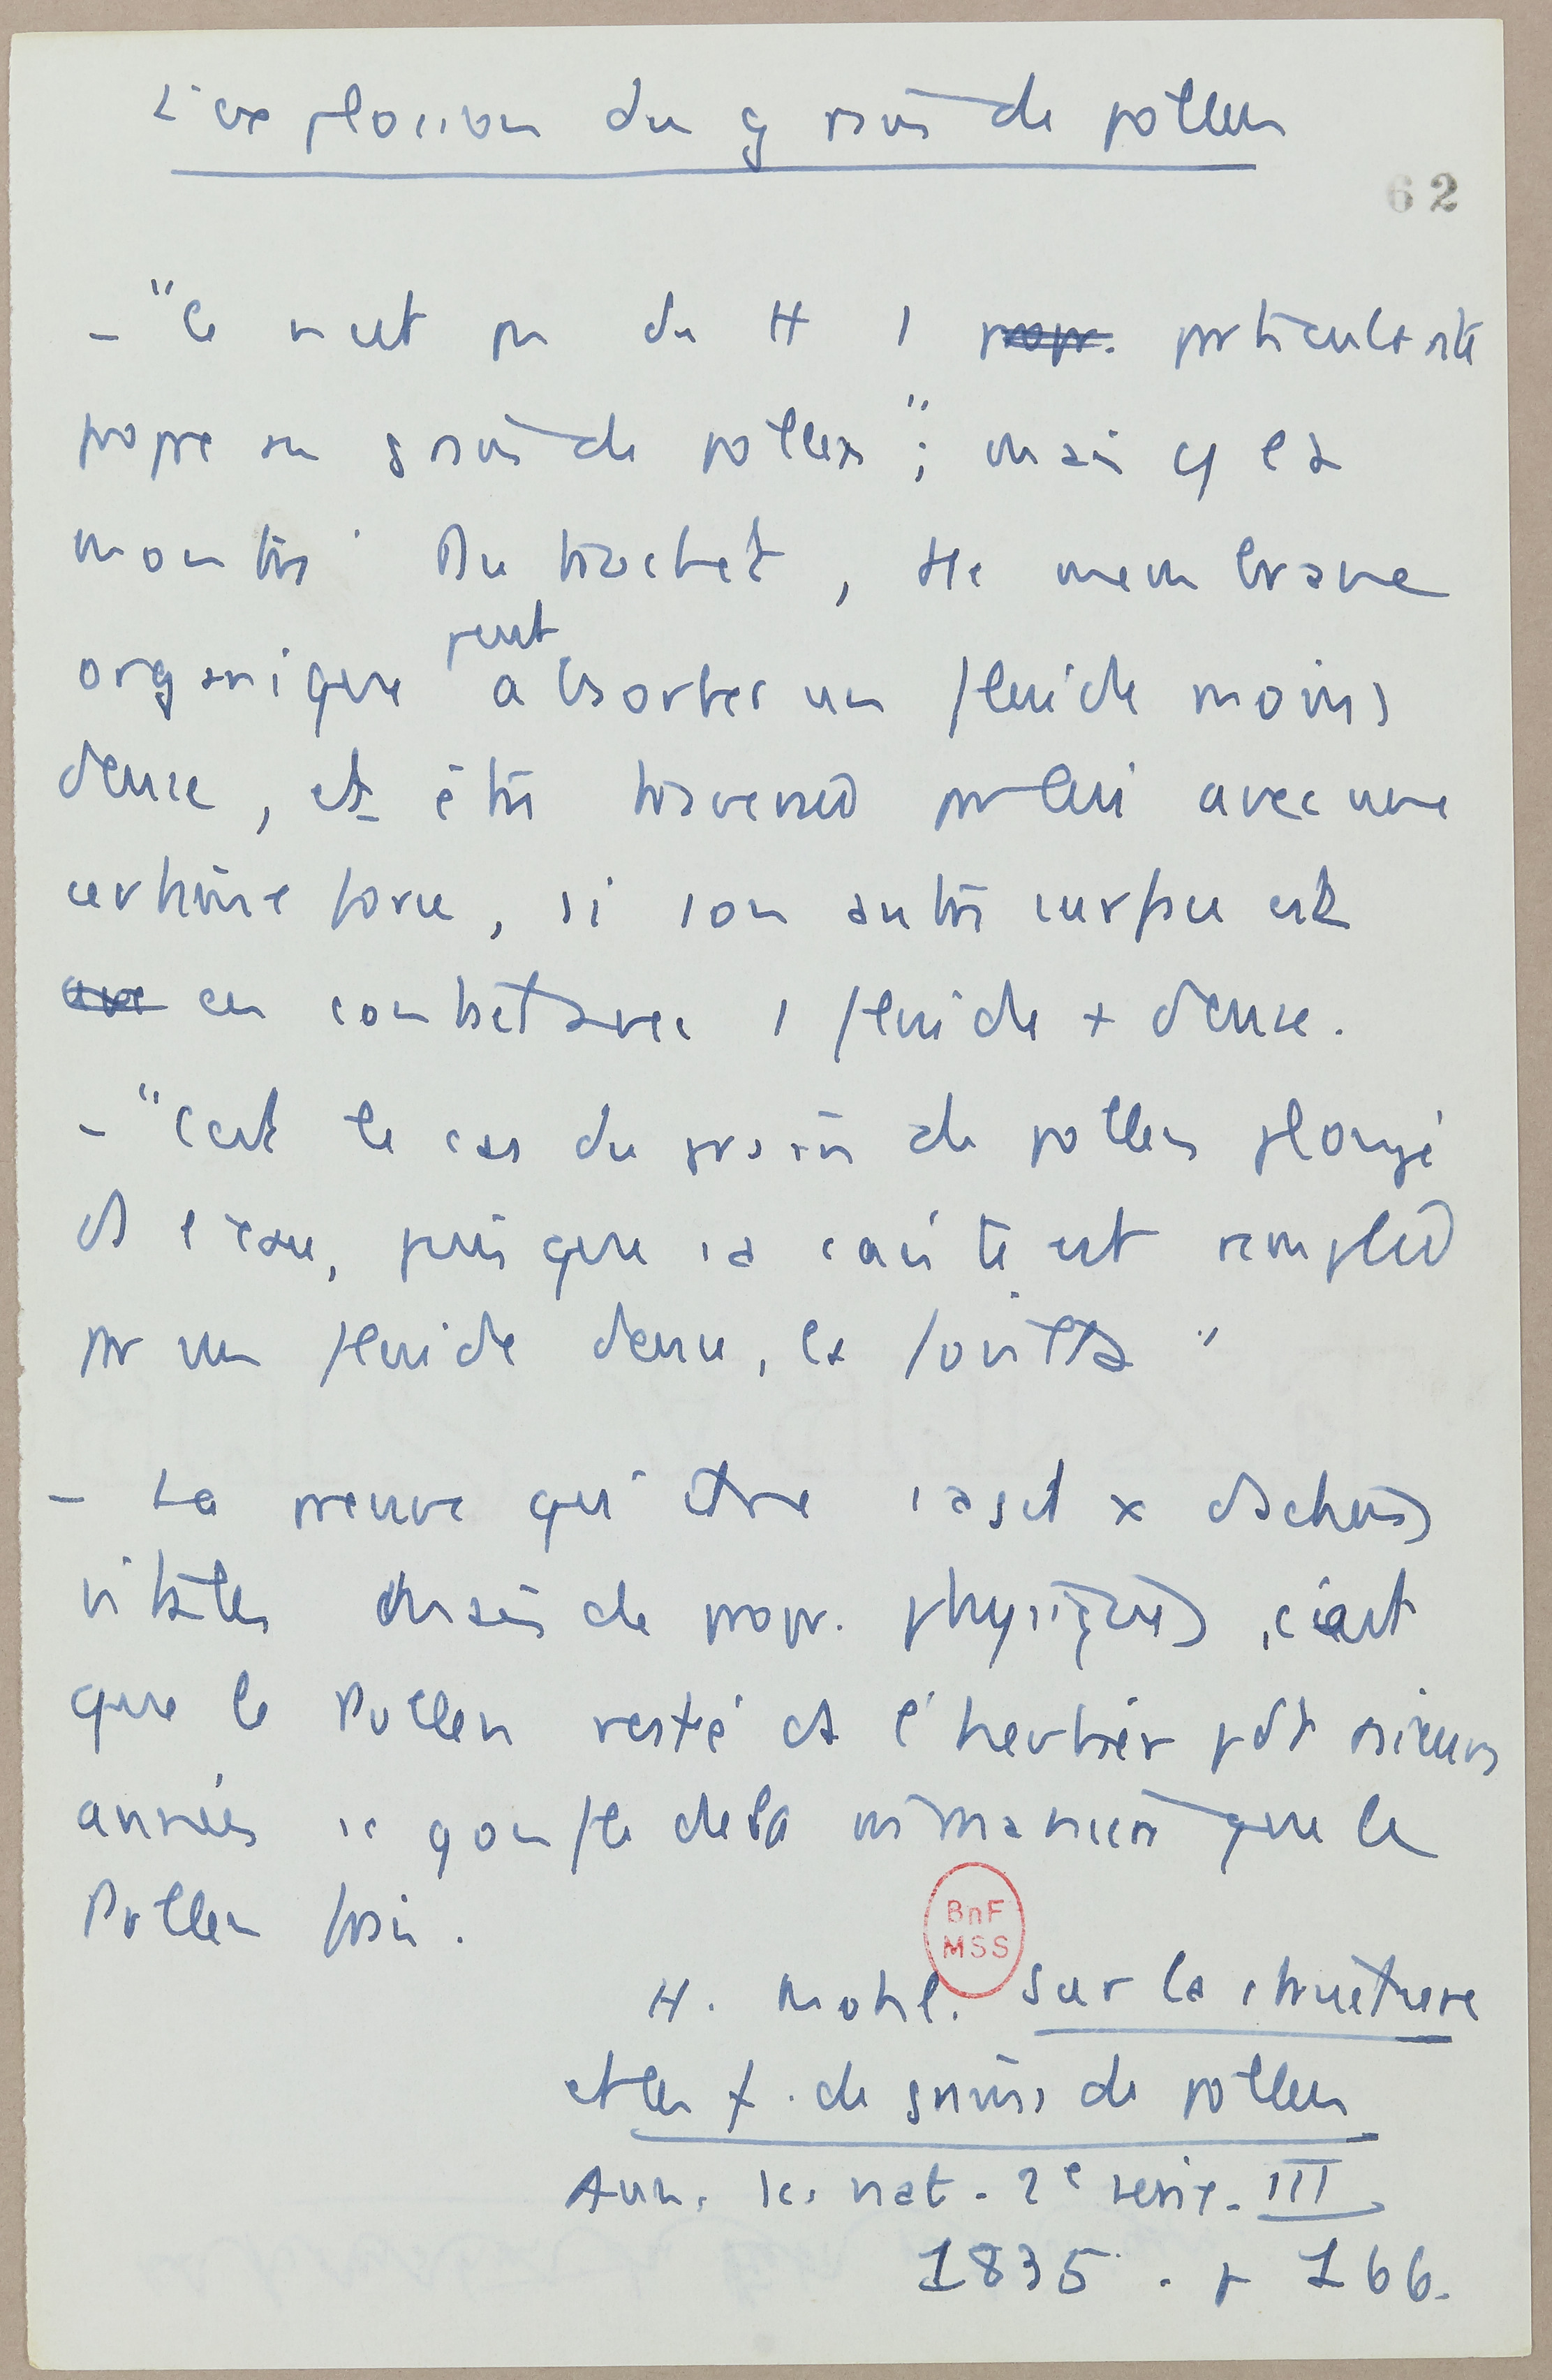 L'explosion du grain de pollen
62
- "Ce n'est pas du tt 1 propr. particularité
propre au grain de pollen"; mais cf l'a
montré Dutrochet, tte membrane
organique peut absorber un fluide moins
dense, et être traversée par lui avec une
certaine force, si son autre surface est
avec en contact avec 1 fluide + dense.
- "C'est le cas du grain de pollen plongé
ds l'eau, puisque sa cavité est remplie
par un fluide dense, la fovilla"
- La preuve qu'il ne s'agit pas d'actions
vitales mais de propr. physiques, c'est
que le Pollen resté ds l'herbier pdt
années se gonfle de la m manière que le
Pollen frais.
BnF
MSS
H. Mohl. Sur la structure
et les f. de grains de pollen
Ann. sc. nat. 2e série. III
1835. p 166.